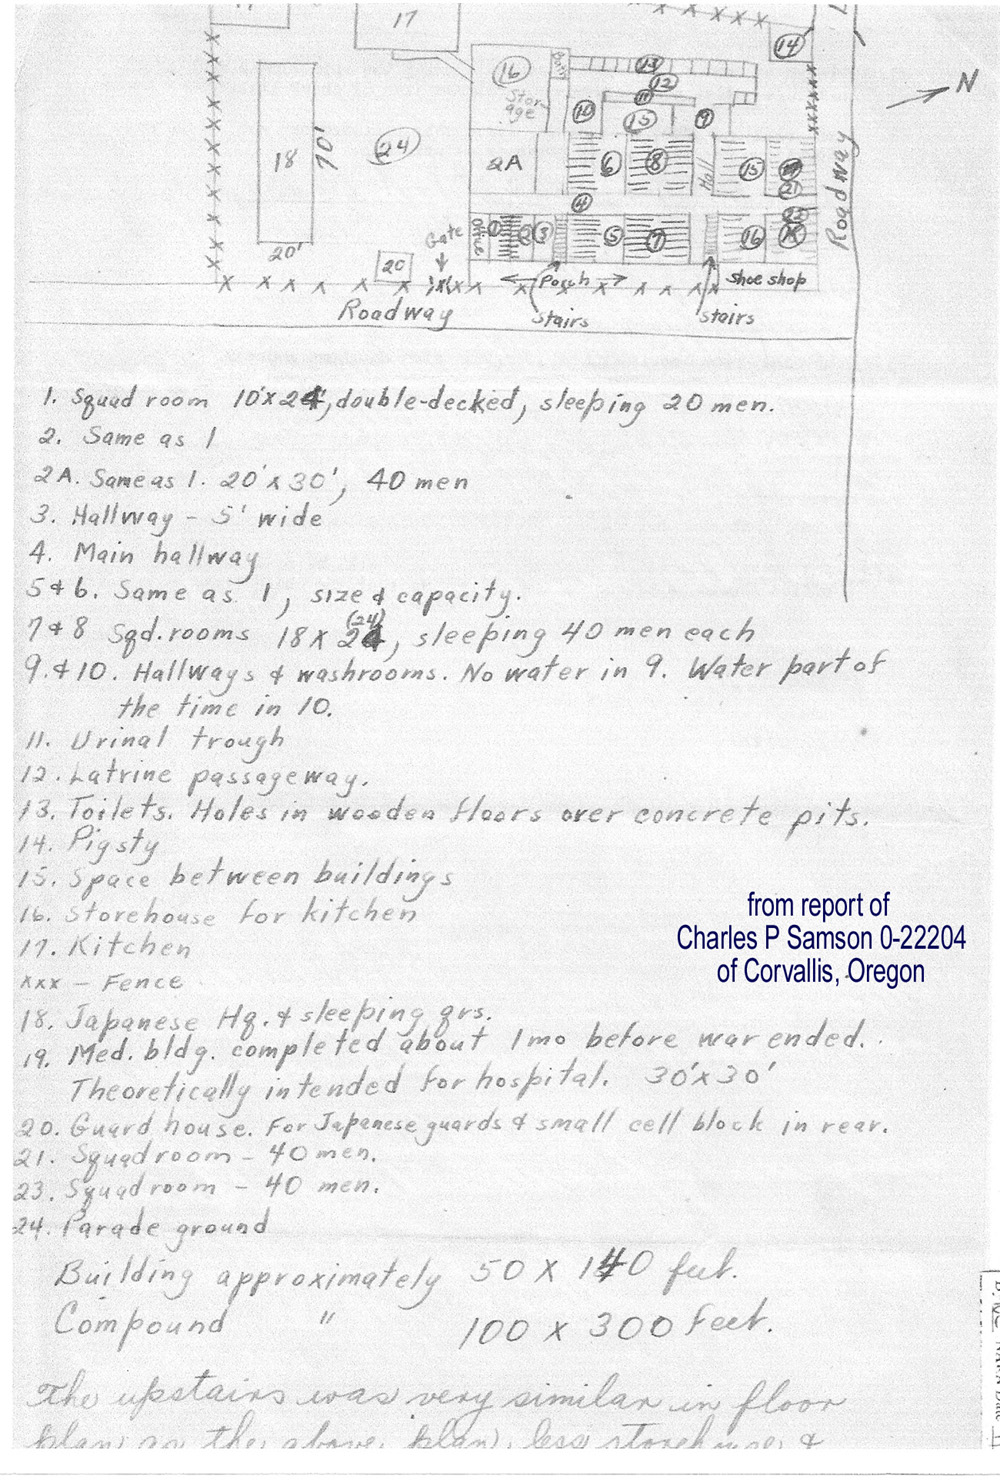 17
14
N
16
13
12
Storage
11
10
15
9
18
70'
24
2A
6
8
Hall
15
21
Roadway
4
22
Gate
Office
1
2
3
5
7
16
20'
20
Porch
shoe shop
Roadway
stairs
stairs
1. Squad room 10'x24', double-decked, sleeping 20 men.
2. Same as 1
2A. Same as 1. 20'x30', 40 men
3. Hallway - 5' wide
4. Main hallway
5 & 6. Same as 1, size & capacity.
7 & 8 Sqd. rooms 18 x 24 (24), sleeping 40 men each
9. & 10. Hallways & washrooms. No water in 9. Water part of
the time in 10.
11. Urinal trough
12. Latrine passageway.
13. Toilets. Holes in wooden floors over concrete pits.
14. Pigsty
15. Space between buildings
16. Storehouse for kitchen
17. Kitchen
xxx - Fence
18. Japanese Hq. & sleeping qrs.
19. Med. bldg. completed about 1 mo before war ended.
Theoretically intended for hospital. 30'x30'
20. Guard house. For Japanese guards & small cell block in rear.
21. Squad room - 40 men.
23. Squad room - 40 men.
24. Parade ground
Building approximately 50 x 140 feet.
Compound " 100 x 300 Feet.
The upstairs was very similar in floor
plan as the above plan, less storehouse &
from report of
Charles P Samson 0-22204
of Corvallis, Oregon